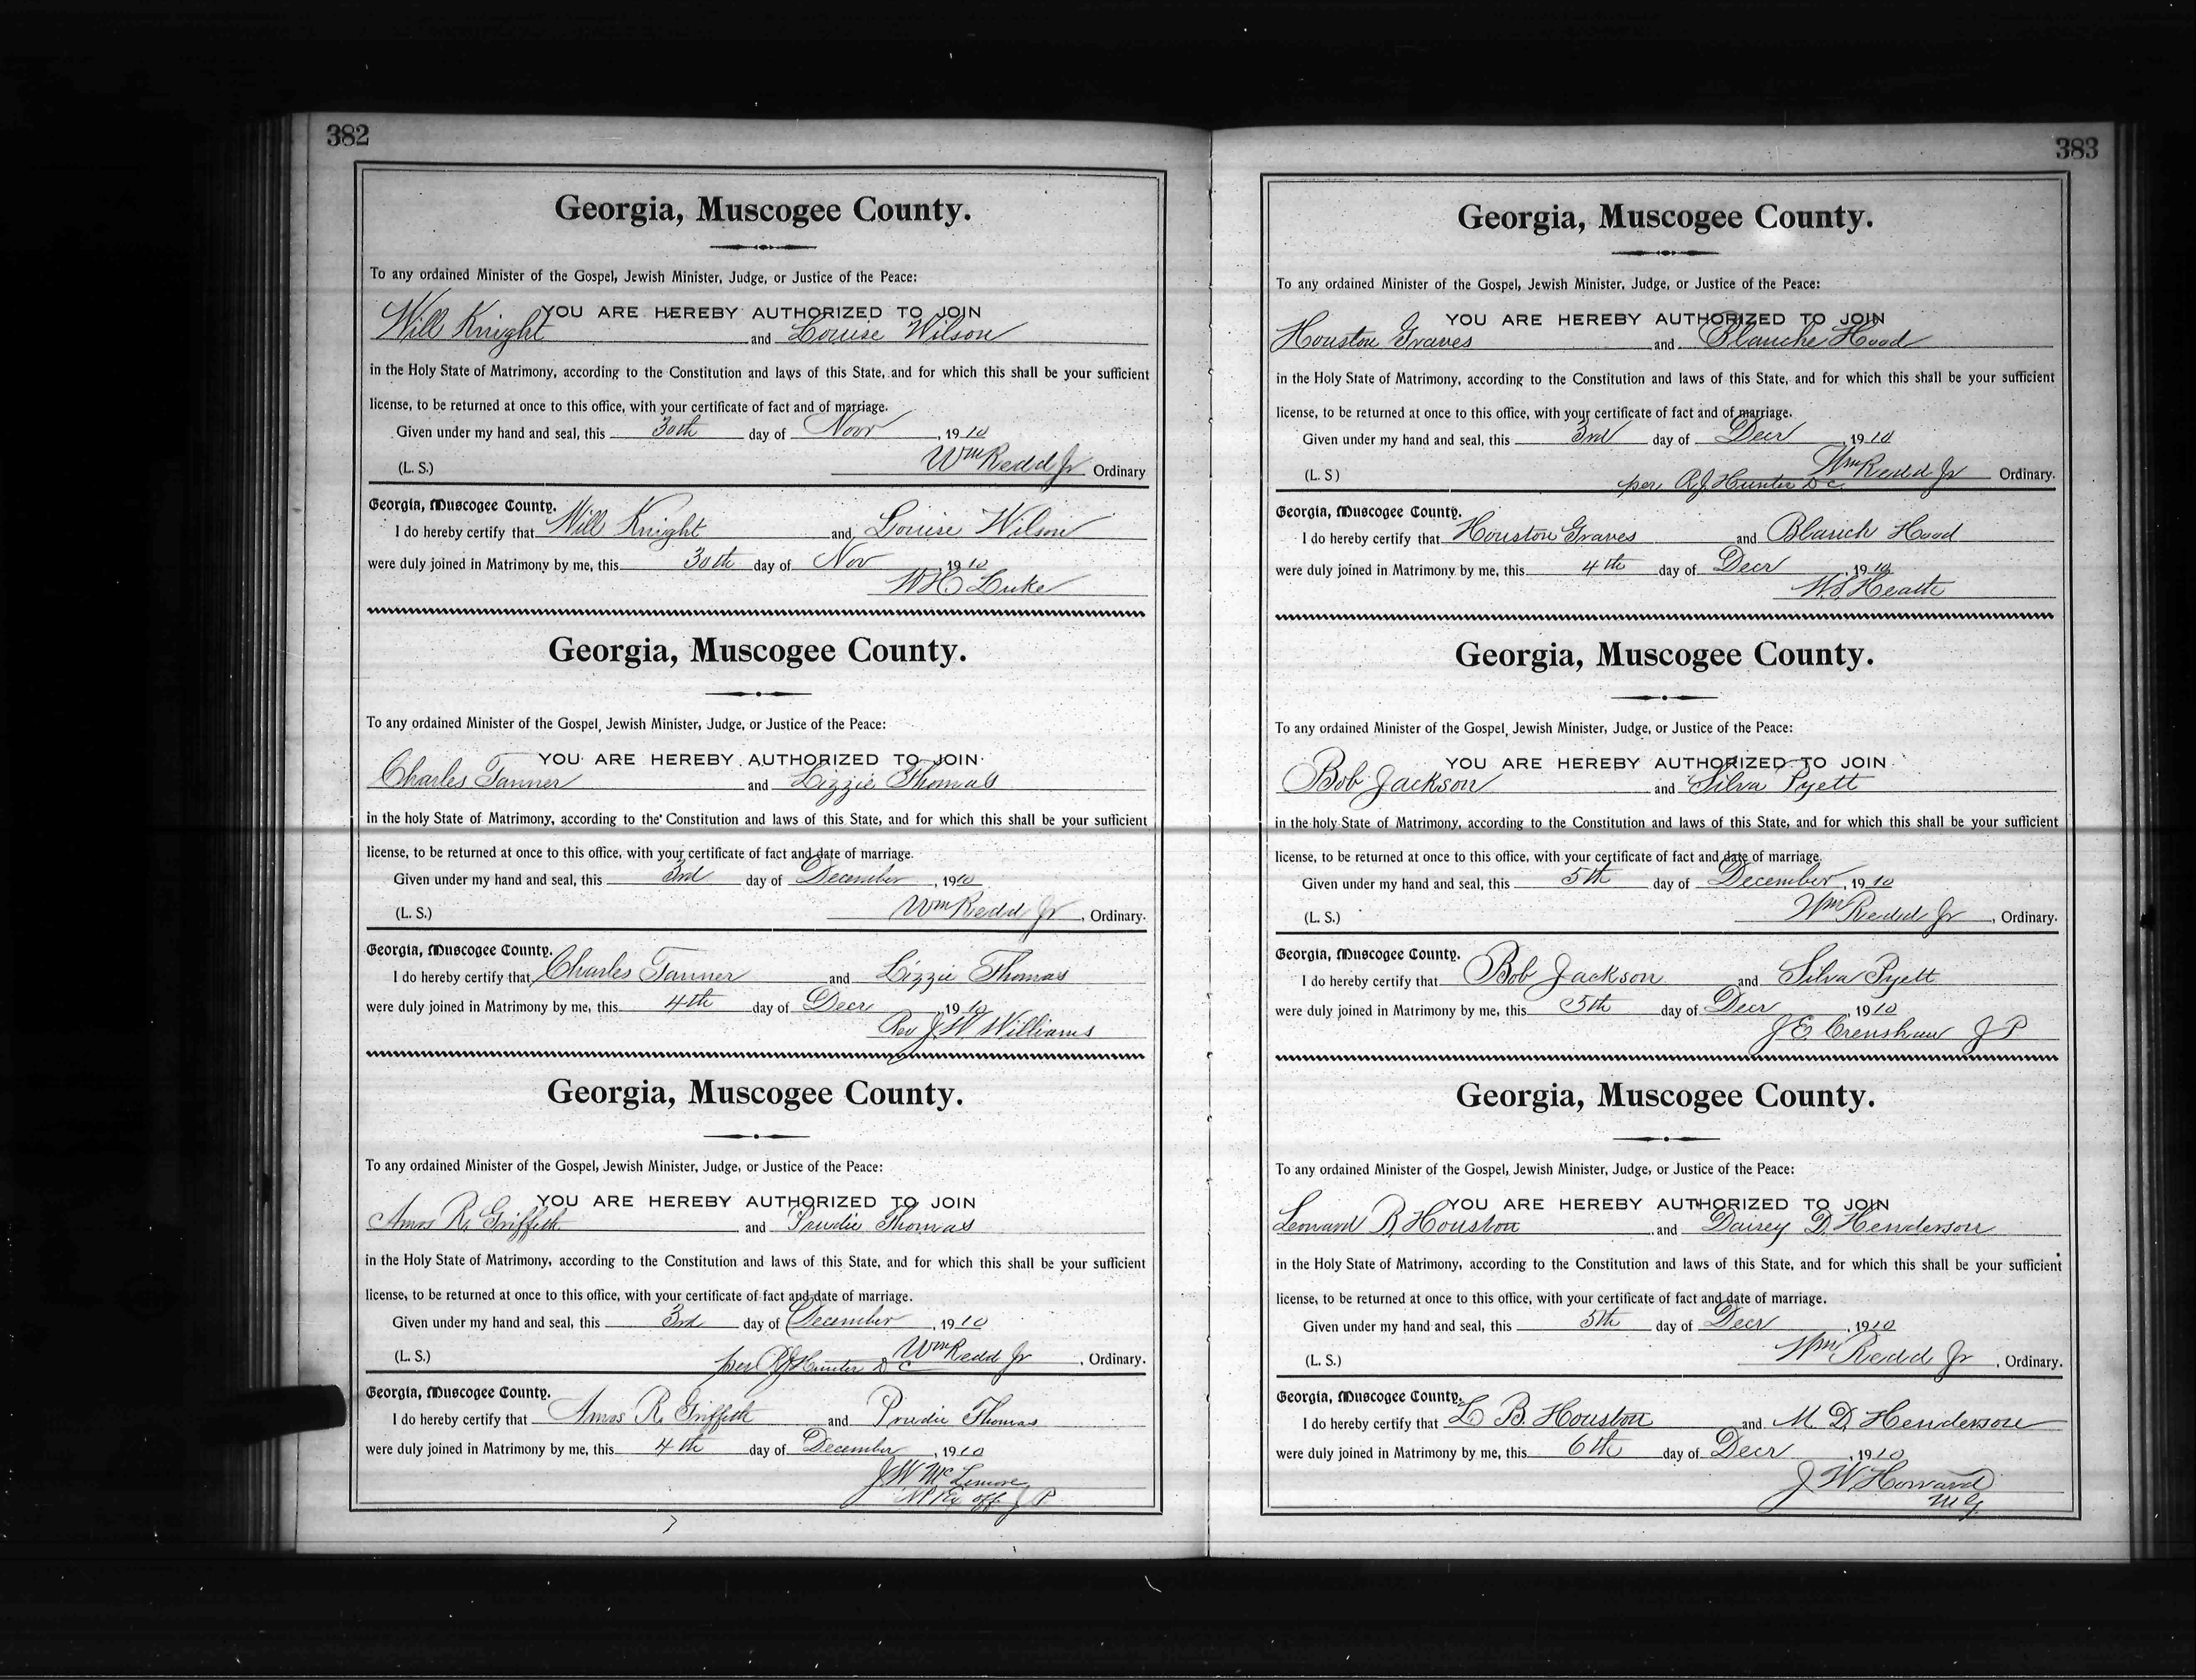 382
Georgia, Muscogee County.
To any ordained Minister of the Gospel, Jewish Minister, Judge, or Justice of the Peace:
YOU ARE HEREBY AUTHORIZED TO JOIN
Will Knight and Louise Wilson
in the Holy State of Matrimony, according to the Constitution and laws of this State, and for which this shall be your sufficient
license, to be returned at once to this office, with your certificate of fact and of marriage.
Given under my hand and seal, this 30th day of Novr, 1910
(L. S.) Wm Redd Jr Ordinary
Georgia, Muscogee County.
I do hereby certify that Will Knight and Louise Wilson
were duly joined in Matrimony by me, this 30th day of Nov 1910
W H Luke
Georgia, Muscogee County.
To any ordained Minister of the Gospel, Jewish Minister, Judge, or Justice of the Peace:
YOU ARE HEREBY AUTHORIZED TO JOIN
Charles Tanner and Lizzie Thomas
in the holy State of Matrimony, according to the Constitution and laws of this State, and for which this shall be your sufficient
license, to be returned at once to this office, with your certificate of fact and date of marriage.
Given under my hand and seal, this 3rd day of December, 1910
(L. S.) Wm Redd Jr, Ordinary.
Georgia, Muscogee County.
I do hereby certify that Charles Tanner and Lizzie Thomas
were duly joined in Matrimony by me, this 4th day of Decr, 1910
Rev J. W Williams
Georgia, Muscogee County.
To any ordained Minister of the Gospel, Jewish Minister, Judge, or Justice of the Peace:
YOU ARE HEREBY AUTHORIZED TO JOIN
Amos R. Griffith and Prudie Thomas
in the Holy State of Matrimony, according to the Constitution and laws of this State, and for which this shall be your sufficient
license, to be returned at once to this office, with your certificate of fact and date of marriage.
Given under my hand and seal, this 3rd day of December, 1910
(L. S.) per R J Hunter D C Wm Redd Jr, Ordinary.
Georgia, Muscogee County.
I do hereby certify that Amos R. Griffith and Prudie Thomas
were duly joined in Matrimony by me, this 4th day of December, 1910
J W McLemore
N P Ex off J P
383
Georgia, Muscogee County.
To any ordained Minister of the Gospel, Jewish Minister, Judge, or Justice of the Peace:
YOU ARE HEREBY AUTHORIZED TO JOIN
Houston Graves and Blanche Hood
in the Holy State of Matrimony, according to the Constitution and laws of this State, and for which this shall be your sufficient
license, to be returned at once to this office, with your certificate of fact and of marriage.
Given under my hand and seal, this 3rd day of Decr, 1910
(L. S) Wm Redd Jr Ordinary.
per R J Hunter D C
Georgia, Muscogee County.
I do hereby certify that Houston Graves and Blanch Hood
were duly joined in Matrimony by me, this 4th day of Decr, 1910
W. S. Heath
Georgia, Muscogee County.
To any ordained Minister of the Gospel, Jewish Minister, Judge, or Justice of the Peace:
YOU ARE HEREBY AUTHORIZED TO JOIN
Bob Jackson and Silva Pyett
in the holy State of Matrimony, according to the Constitution and laws of this State, and for which this shall be your sufficient
license, to be returned at once to this office, with your certificate of fact and date of marriage.
Given under my hand and seal, this 5th day of December, 1910
(L. S.) Wm Redd Jr, Ordinary.
Georgia, Muscogee County.
I do hereby certify that Bob Jackson and Silva Pyett
were duly joined in Matrimony by me, this 5th day of Decr, 1910
J E Crenshaw J P
Georgia, Muscogee County.
To any ordained Minister of the Gospel, Jewish Minister, Judge, or Justice of the Peace:
YOU ARE HEREBY AUTHORIZED TO JOIN
Leonard B. Houston and Daisey D. Henderson
in the Holy State of Matrimony, according to the Constitution and laws of this State, and for which this shall be your sufficient
license, to be returned at once to this office, with your certificate of fact and date of marriage.
Given under my hand and seal, this 5th day of Decr, 1910
(L. S.) Wm Redd Jr, Ordinary.
Georgia, Muscogee County.
I do hereby certify that L B. Houston and M. D. Henderson
were duly joined in Matrimony by me, this 6th day of Decr, 1910
J W Howard
M G.